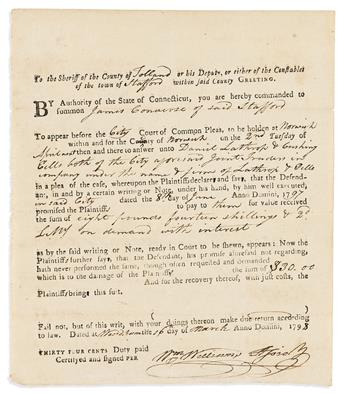 To the Sheriff of the County of Tolland or his Deputy, or either of the Constables
of the town of Stafford within said County GREETING.
BY Authority of the State of Connecticut, you are hereby commanded to
summon James Converse of said Stafford
To appear before the City Court of Common Pleas, to be holden at Norwich
within and for the County of Norwich on the 2nd Tuesday of
then and there to answer unto Daniel Lathrop & Cushing
Eells both of the City aforesaid Joint Traders in
company under the name & firm of Lathrop & Eells
in a plea of the case, whereupon the Plaintiffs declare and say, that the Defend-
ant, in and by a certain writing or Note, under his hand, by him well executed,
on said City dated the 8th day of June Anno Domini, 1797
promised the Plaintiffs to pay to them for value received
the sum of eight pounds fourteen shillings & 2d
LMy on demand with interest
as by the said writing or Note, ready in Court to be shewn, appears: Now the
Plaintiffs further say, that the Defendant, his promise aforesaid not regarding,
hath never performed the same, though often requested and demanded
which is to the damage of the Plaintiffs the sum of $30.00
And for the recovery thereof, with just costs, the
Plaintiffs brings this suit.
Fail not, but of this writ, with your doings thereon make due return according
to law. Dated at the 16 day of March Anno Domini, 1798
THIRTY FOUR CENTS Duty paid
Certified and signed PER
Wm Williams